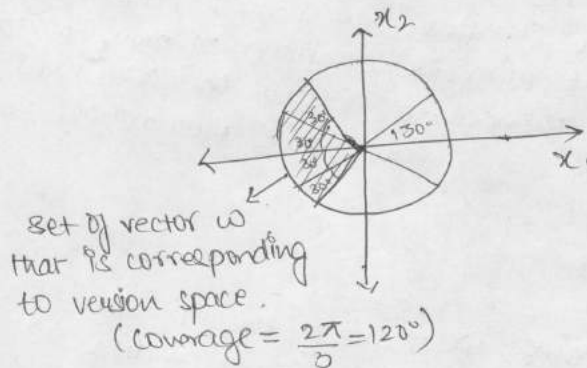 x2
30°
30°
30°
30°
130°
x
set of vector w
that is corresponding
to version space.
(coverage = 2π/0 = 120°)